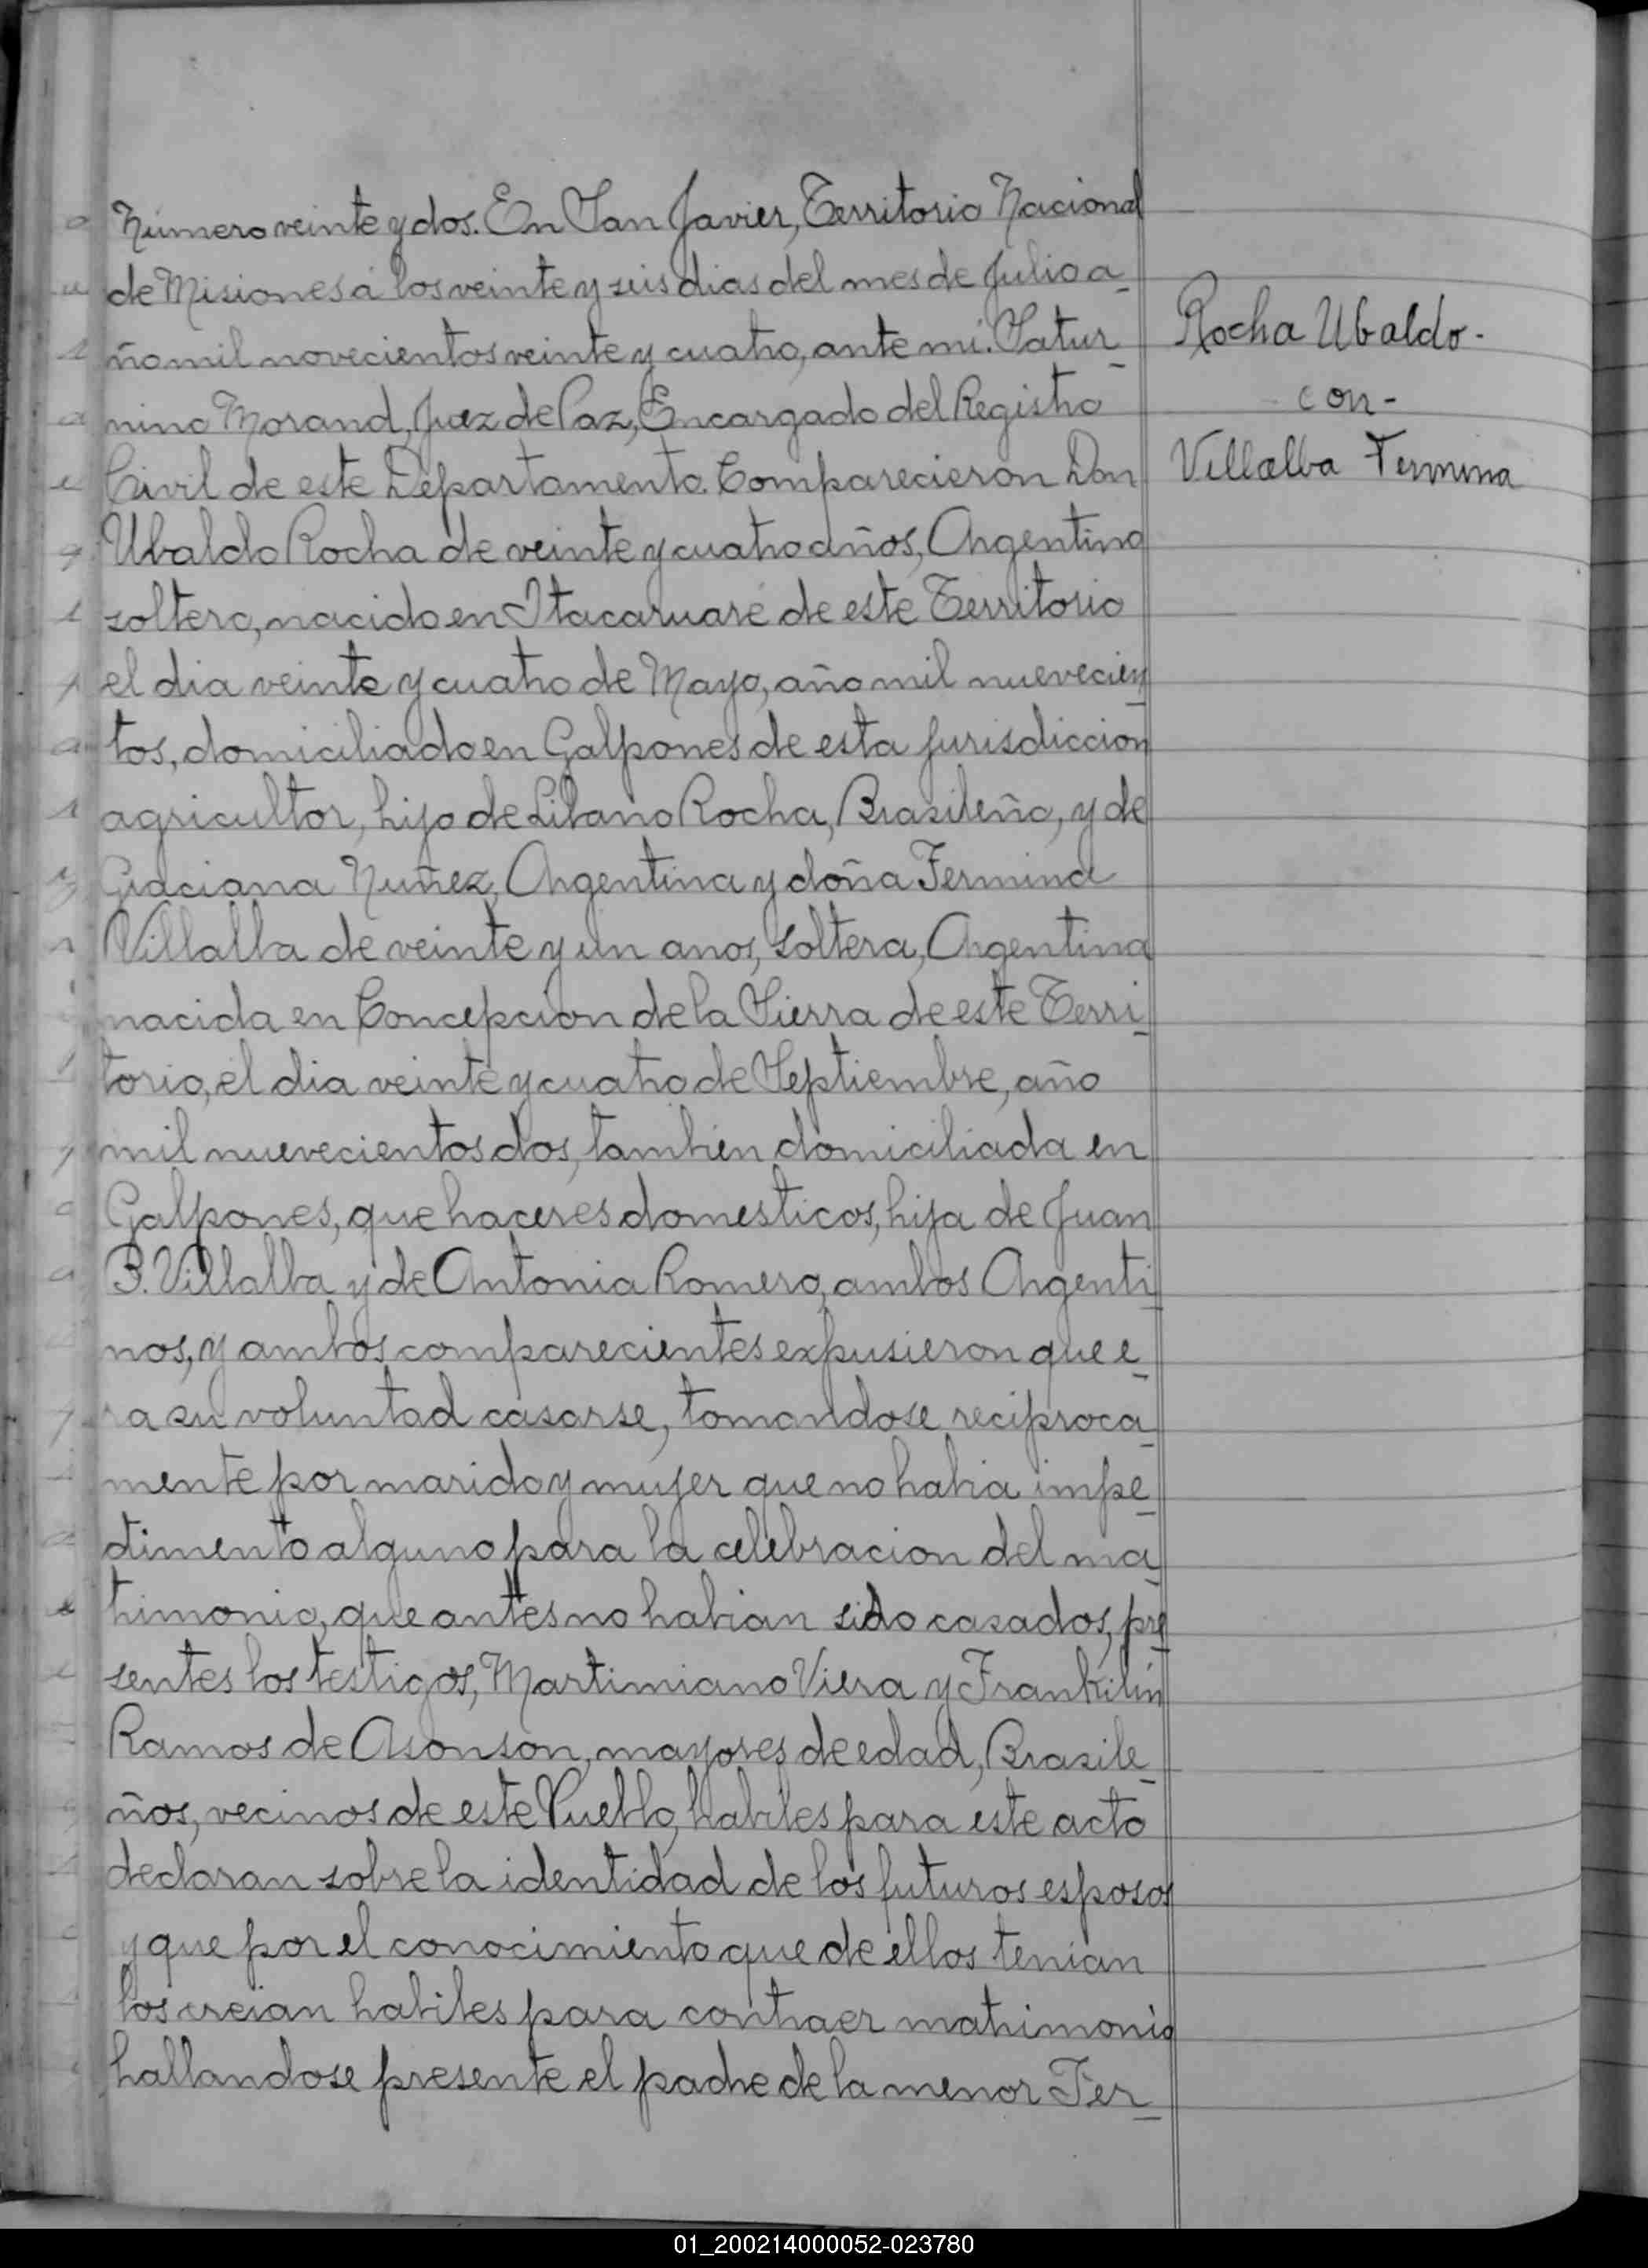 Número veinte y dos. En San Javier, Territorio Nacional
de Misiones á los veinte y seis dias del mes de Julio a-
ño mil novecientos veinte y cuatro, ante mi. Satur-
nino Morand, Juez de Paz, Encargado del Registro
Civil de este Departamento. Comparecieron Don
Ubaldo Rocha de veinte y cuatro años, Argentino
soltero, nacido en Itacaruaré de este Territorio
el dia veinte y cuatro de Mayo, año mil nuevecien-
tos, domiciliado en Galpones de esta jurisdiccion
agricultor, hijo de Libano Rocha, Brasileño, y de
Graciana Nuñez, Argentina y doña Fermina
Villalba de veinte y un anos, soltera, Argentina
nacida en Concepcion de la Sierra de este Terri-
torio, el dia veinte y cuatro de Septiembre, año
mil nuevecientos dos, tambien domiciliada en
Galpones, que haceres domesticos, hija de Juan
B. Villalba y de Antonia Romero, ambos Argenti-
nos, y ambos comparecientes expusieron que e-
ra su voluntad casarse, tomandose reciproca-
mente por marido y mujer que no habia impe-
dimento alguno para la celebracion del ma-
trimonio, que antes no habian sido casados, pre-
sentes los testigos, Martimiano Viera y Frankilin
Ramos de Asonson, mayores de edad, Brasile-
ños, vecinos de este Pueblo, habiles para este acto
declaran sobre la identidad de los futuros esposos
y que por el conocimiento que de ellos tenian
los creian habiles para contraer matrimonio
hallandose presente el padre de la menor Fer-
Rocha Ubaldo-
con-
Villalba Fermina
01_200214000052-023780